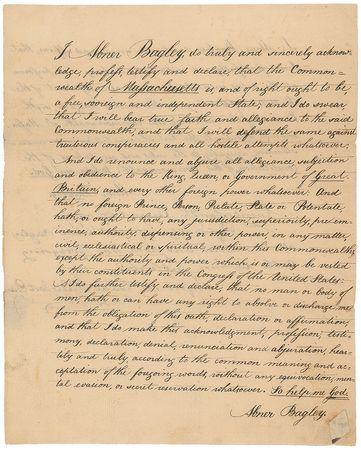 I Abner Bagley, do truly and sincerely acknow-
ledge, profess, testify and declare, that the Common-
wealth of Massachusetts is, and of right ought to be
a free, sovreign and independent State; and I do swear
that I will bear true faith and allegiance to the said
Commonwealth, and that I will defend the same against
traiterous conspiracies and all hostile attempts whatsoever.
And I do renounce and abjure all allegiance, subjection
and obedience to the King, Quean, or Government of Great
Britain, and every other foreign power whatsoever And
that no foreign Prince, Person, Prelate, State or Potentate
hath, or ought to have, any jurisdiction, superiority, preem-
inence, authority, dispensing or other power in any matter,
civil, ecclestical or spiritual, within this Commonwealth;
except the authority and power which is or may be vested
by their constituents in the Congress of the United States:
And I do further testify and declare, that no man or body of
men, hath or can have any right to abolve or discharge me
from the obligation of this oath, declaration or affirmation;
and that I do make this acknowledgment, profession, testi-
mony, declaration, denial, renunciation and abjuration, hear-
tily and truly, according to the common meaning and ac-
ceptation of the forgoing words, without any equivocation, men-
tal evasion, or secret reservation whatsoever. So help me God.
Abner Bagley.